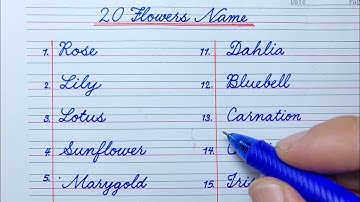 Date
20 Flowers Name
1. Rose
2. Lily
3. Lotus
4. Sunflower
5. Marygold
11. Dahlia
12. Bluebell
13. Carnation
14.
15.